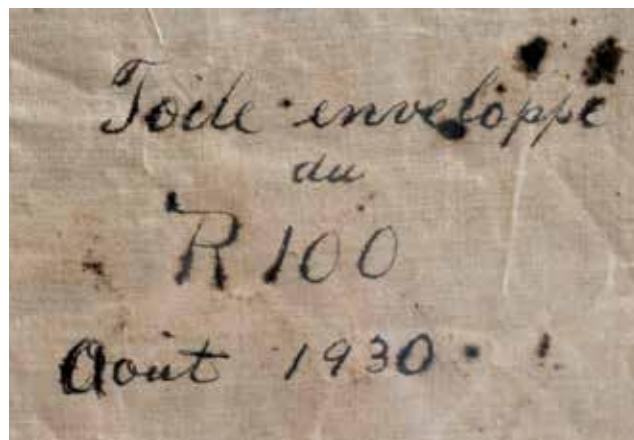 Toile enveloppe
du
R 100
Août 1930.